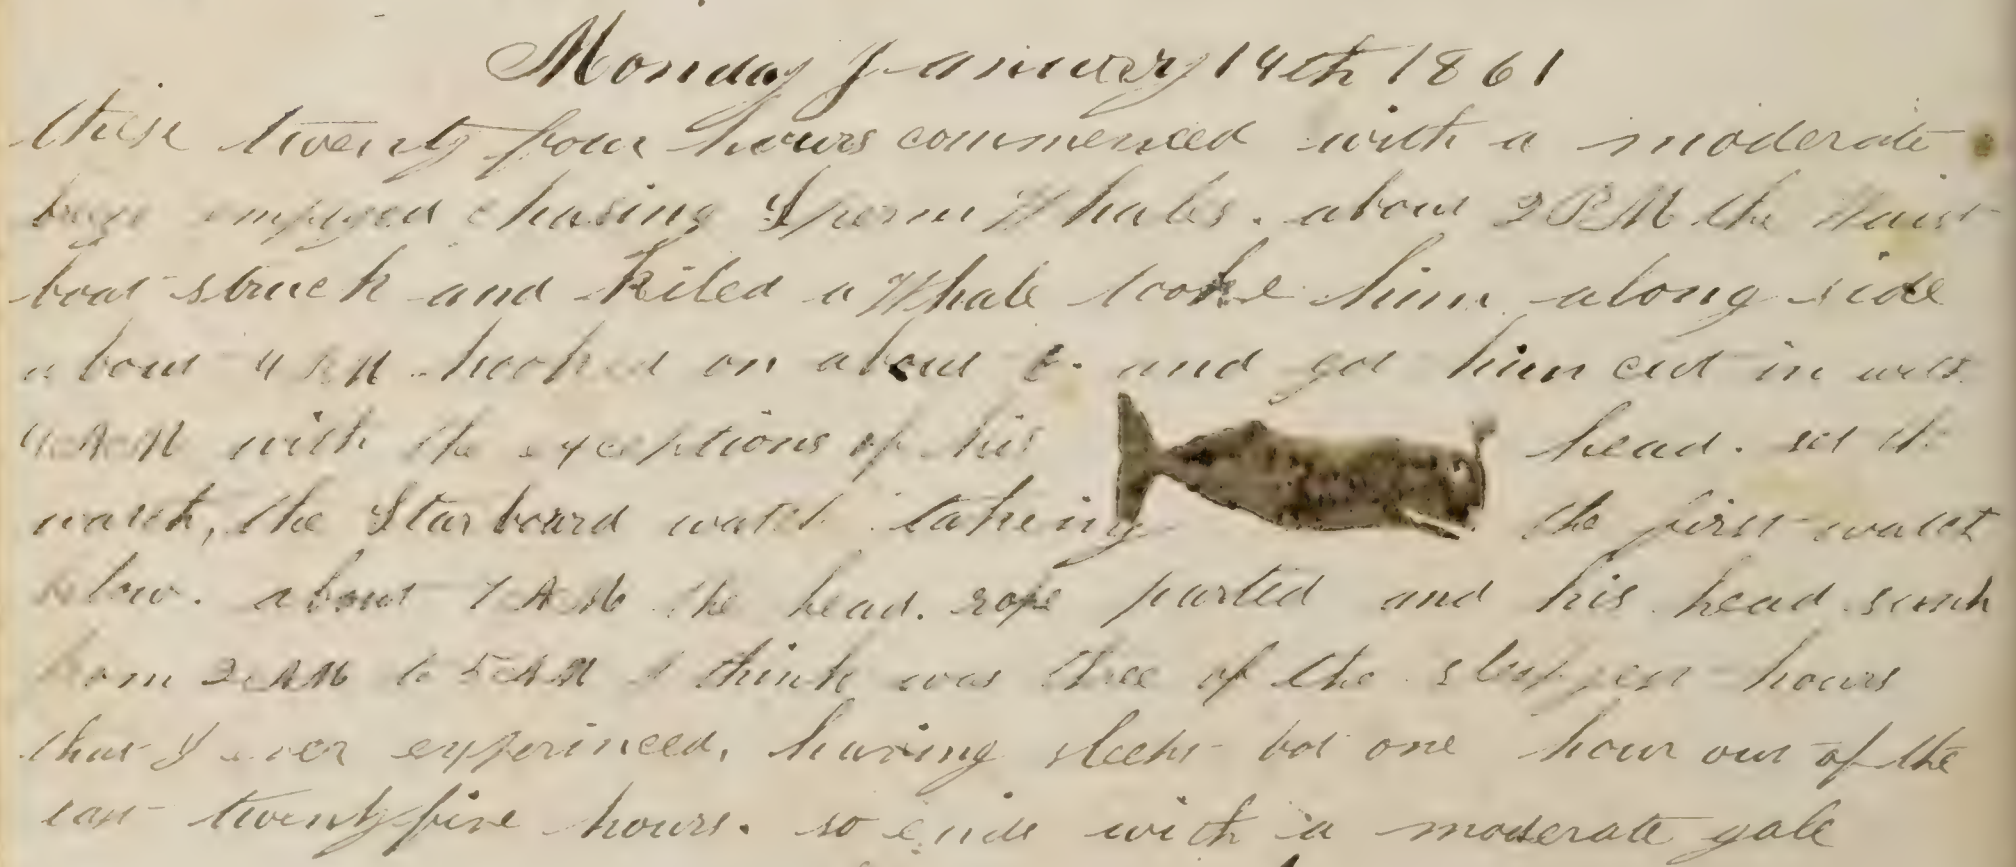 Monday January 14th 1861
these twenty four hours commenced with a moderate
chasing Sperm Whales. about 2 PM the Waist
boat struck and kiled a Whale tooke him along side
about 4 PM hooked on about and got him cut in
AM with the exceptions of his head. set the
watch, the Starboard watch takeing the first watch
about 1 AM the head. rope parted and his head sunk
from 2 AM to 5 AM I think was three of the hours
that I ever experinced, having slept bot one hour out of the
last twenty five hours. so ends with a moderate gale